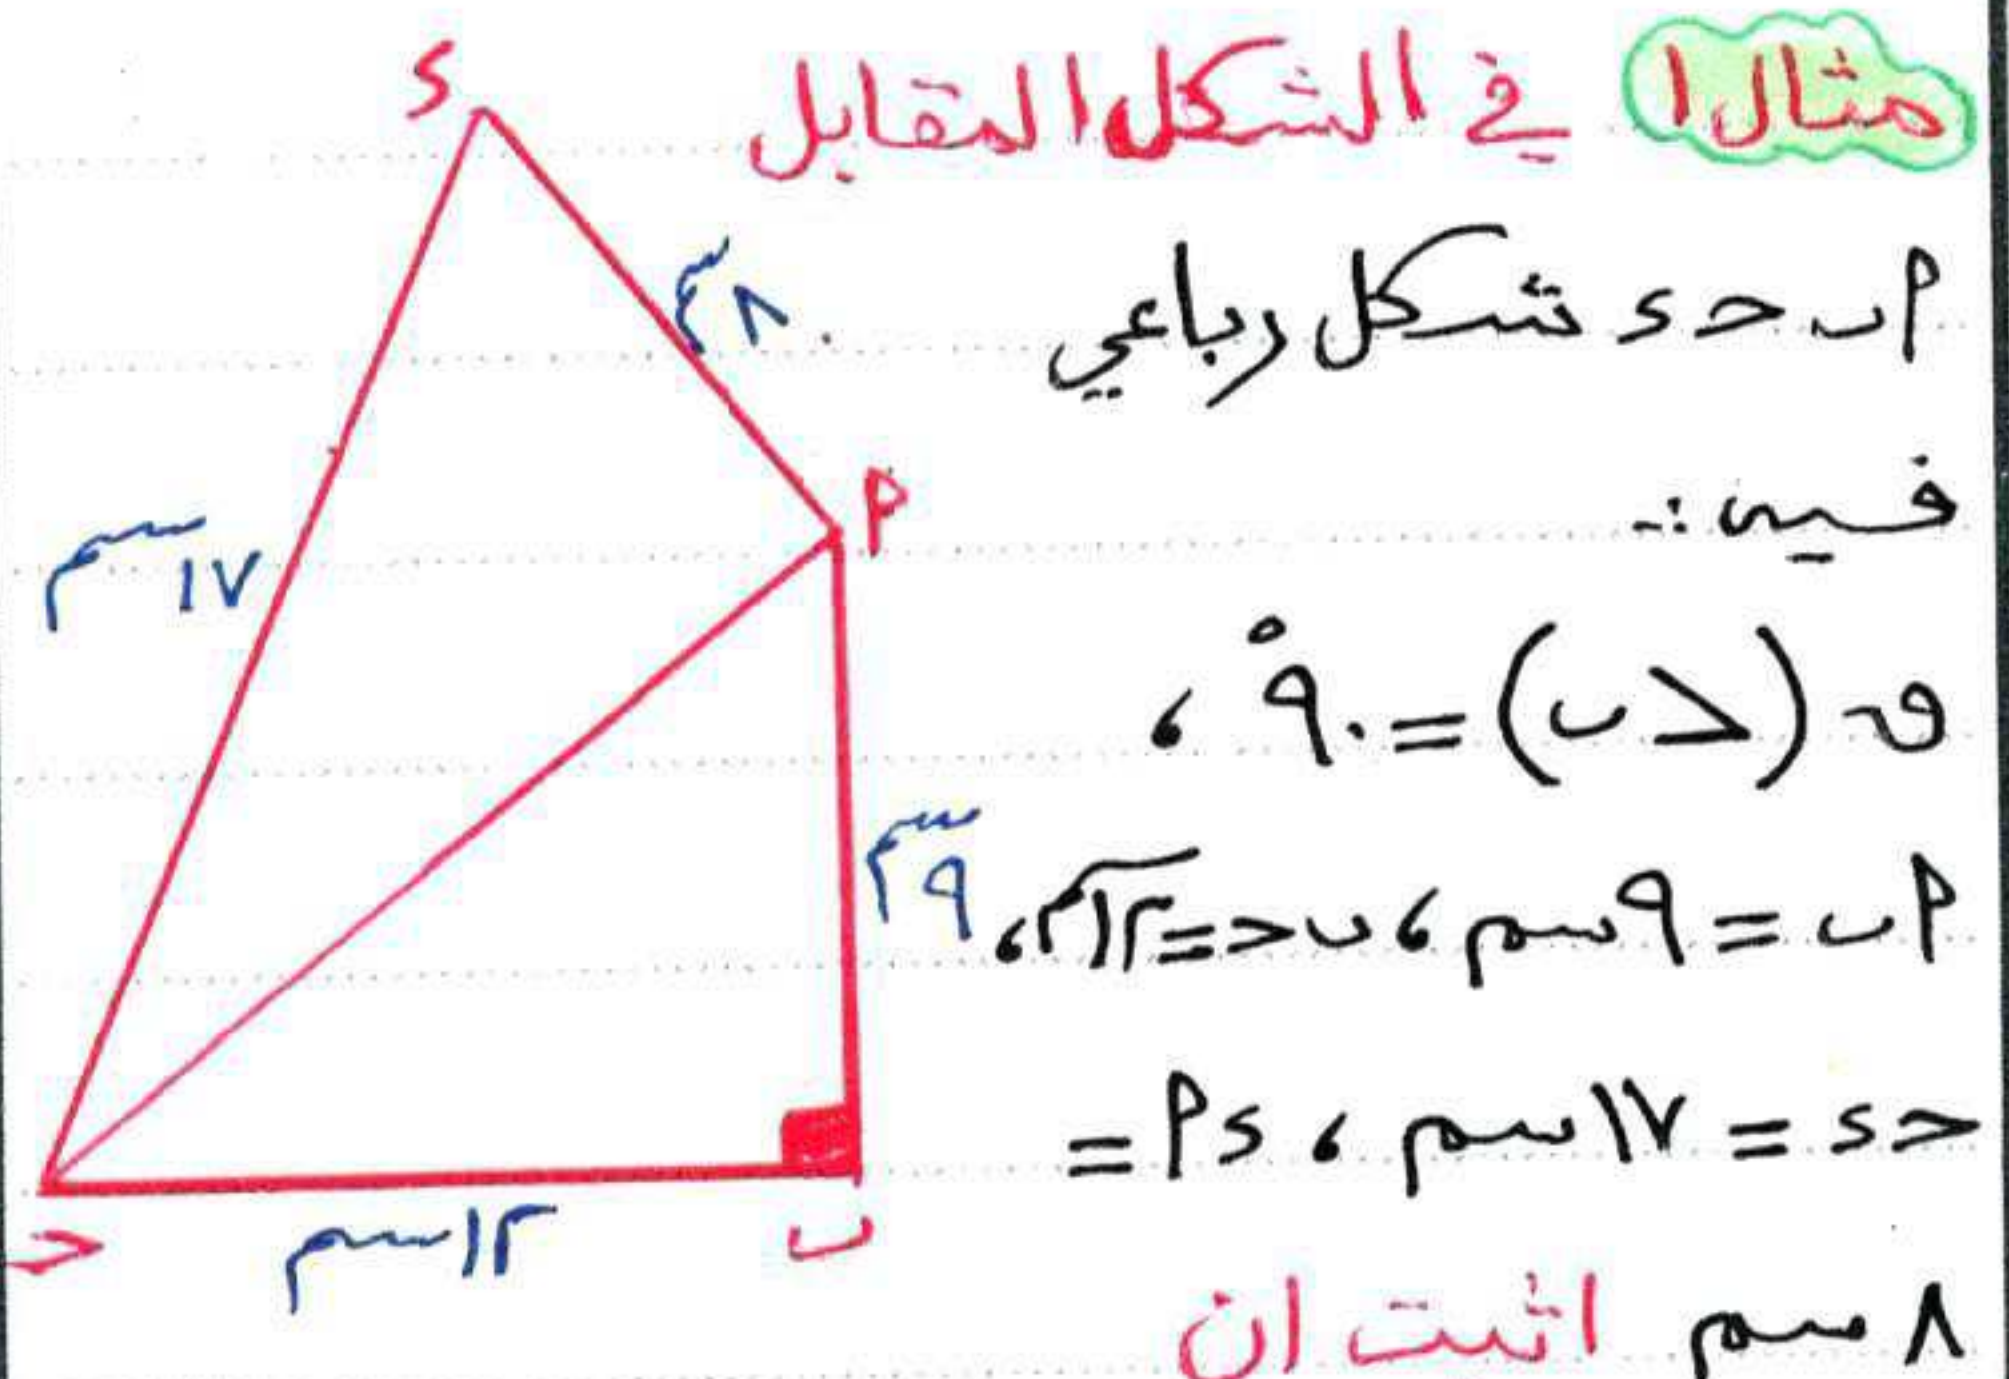 مثال ١ في الشكل المقابل
٢ ب ح د شكل رباعي
فيه :-
ق (> ب) = ٩٠° ،
٢ ب = ٩ سم ، ب ح = ١٢ سم ،
ح د = ١٧ سم ، د ٢ =
٨ سم اثبت ان
د
٨ سم
٢
١٧ سم
٩ سم
١٢ سم
ح
ب